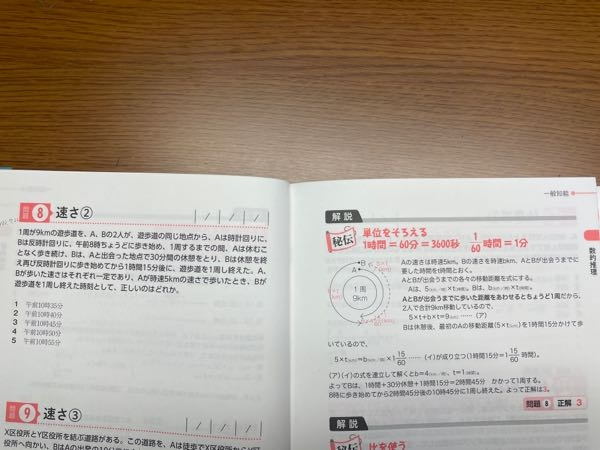 問題 8 速さ②
1周が9kmの遊歩道を、A、Bの2人が、遊歩道の同じ地点から、Aは時計回りに、
Bは反時計回りに、午前8時ちょうどに歩き始め、1周するまでの間、Aは休むこ
となく歩き続け、Bは、Aと出会った地点で30分間の休憩をとり、Bは休憩を終
え再び反時計回りに歩き始めてから1時間15分後に、遊歩道を1周し終えた。A、
Bが歩いた速さはそれぞれ一定であり、Aが時速5kmの速さで歩いたとき、Bが
遊歩道を1周し終えた時刻として、正しいのはどれか。
1 午前10時35分
2 午前10時40分
3 午前10時45分
4 午前10時50分
5 午前10時55分
問題 9 速さ③
X区役所とY区役所を結ぶ道路がある。この道路を、Aは徒歩でX区役所からY区
役所へ向かい、
一般知能
数的推理
解説
秘伝 単位をそろえる
1時間=60分=3600秒 1/60時間=1分
B
1周
9km
Aの速さは時速5km、Bの速さを時速bkm、AとBが出会うまでに
要した時間をt時間とおく。
AとBが出会うまでの各々の移動距離を式にする。
Aは、5(km/時)×t(時間)、Bは、b(km/時)×t(時間)
AとBが出会うまでに歩いた距離をあわせるとちょうど1周だから、
2人で合計9km移動しているので、
5×t+b×t=9(km) ……(ア)
Bは休憩後、最初のAの移動距離(5×t)を1時間15分かけて歩
いているので、
5×t(km)=b(km/時)×1 15/60 ……(イ)が成り立つ(1時間15分=1 15/60 時間)。
(ア)(イ)の式を連立して解くとb=4(km/時)、t=1(時間)。
よってBは、1時間+30分休憩+1時間15分=2時間45分 かかって1周する。
8時に歩き始めてから2時間45分後の10時45分に1周し終えた。よって正解は3。
問題 8 正解 3
解説
秘伝 比を使う